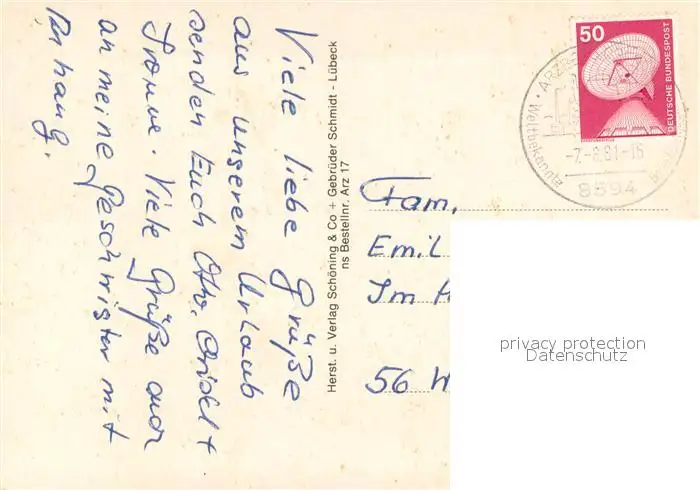 Viele liebe Grüße
aus unserem Urlaub
senden Euch Otto, +
Viele Grüße auch
an meine Geschwister mit
Anhang.
Herst. u. Verlag Schöning & Co + Gebrüder Schmidt - Lübeck
ns Bestellnr. Arz 17
50
DEUTSCHE BUNDESPOST
ARZB
Weltbekannte
-7.-8.81-16
8594
Fam.
Emil
Im
56 W
privacy protection
Datenschutz